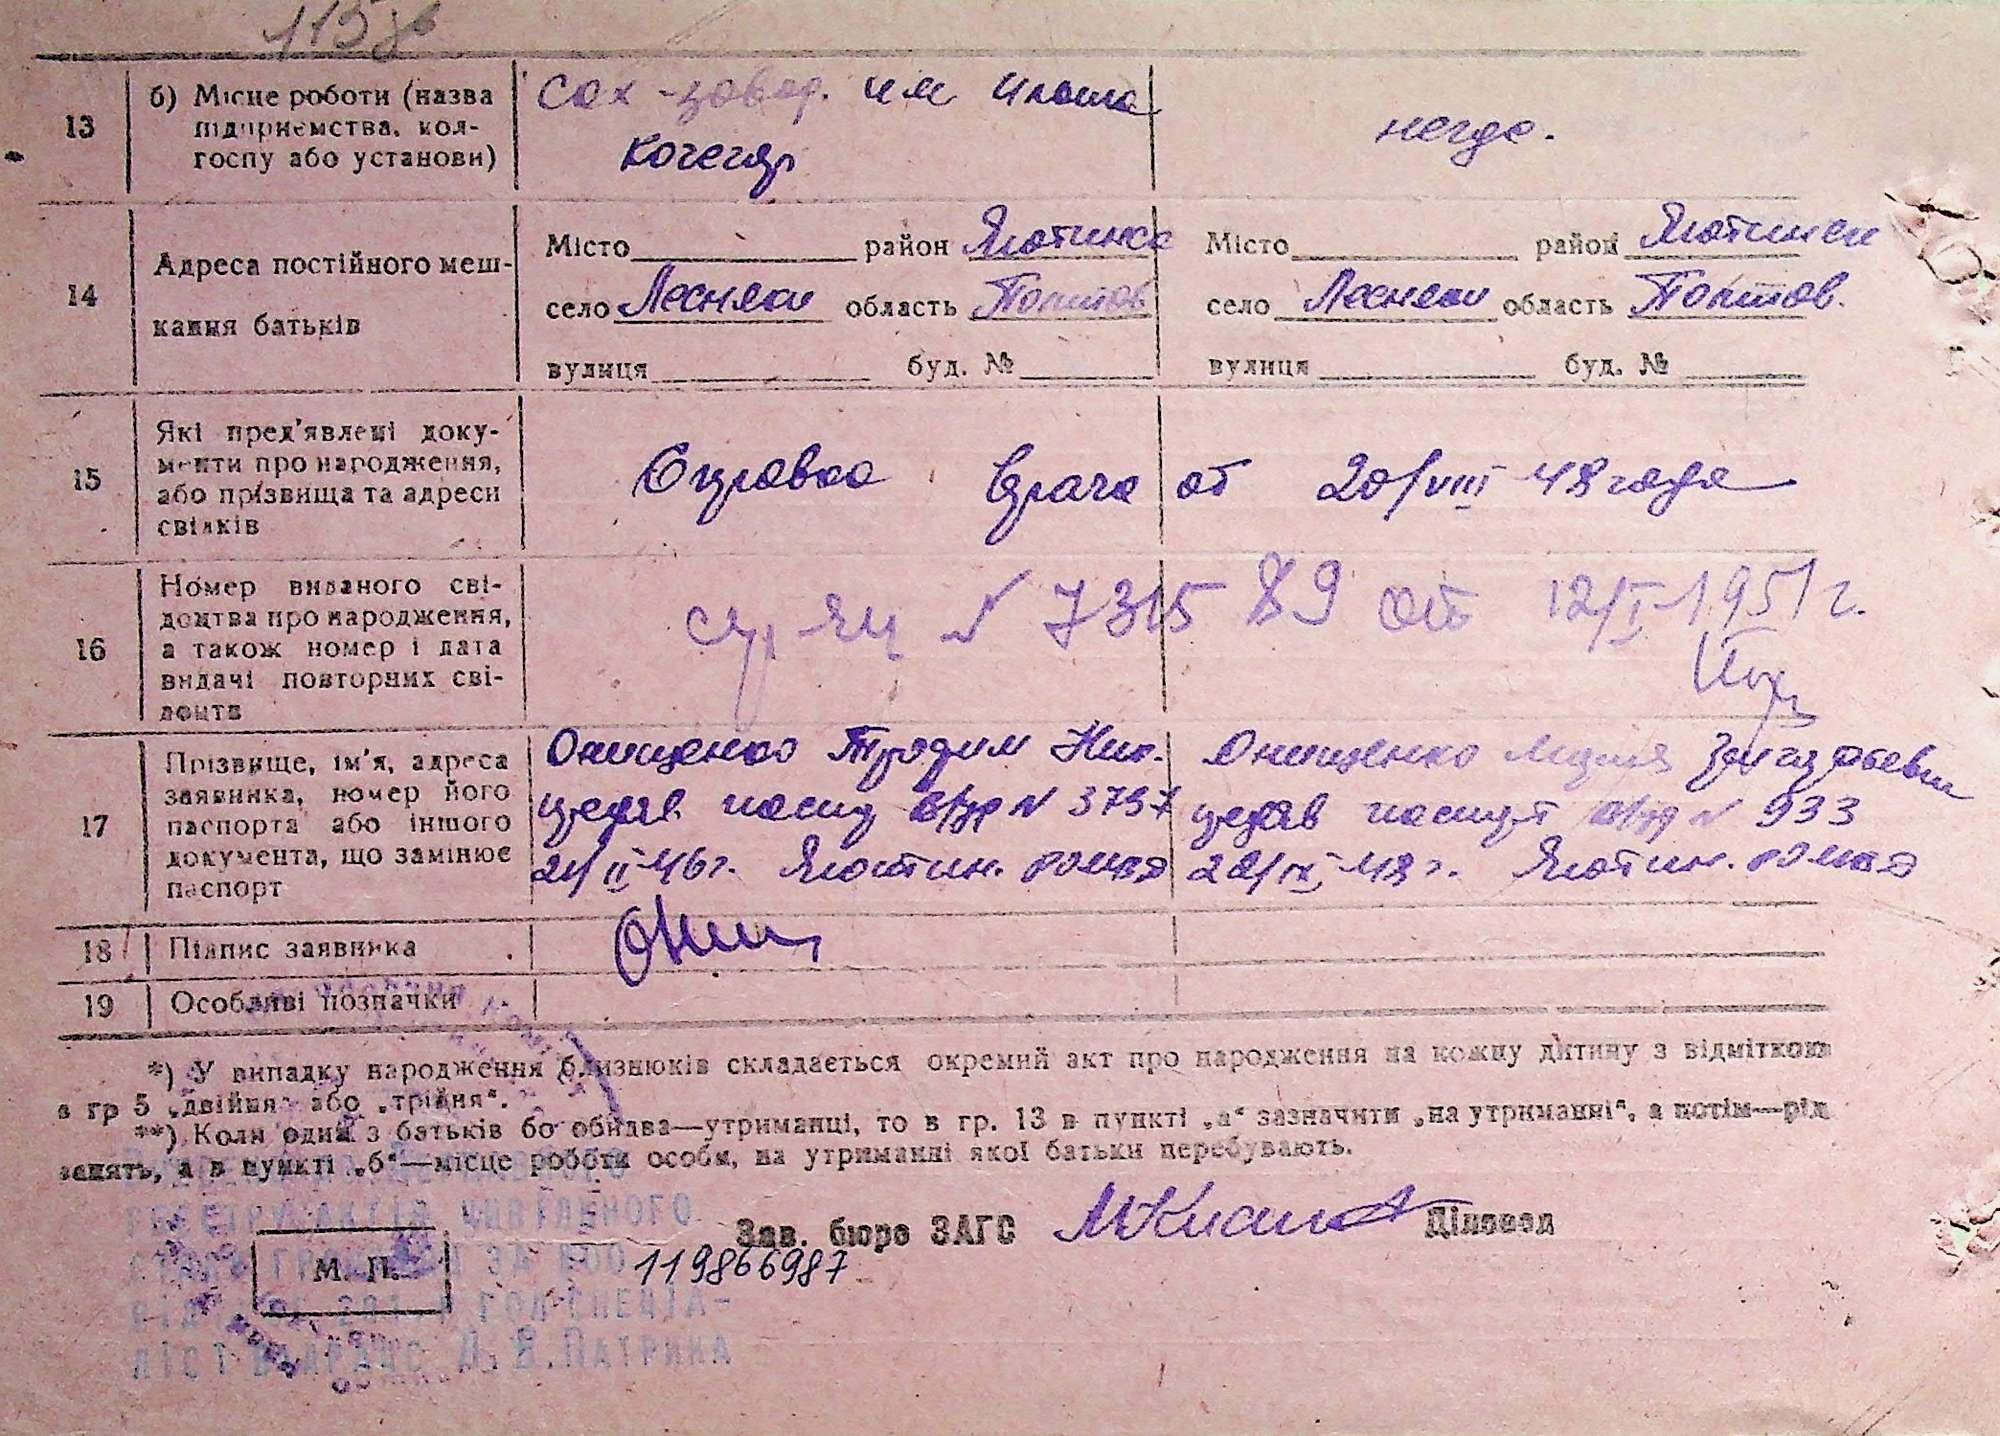 115
13
б) Місце роботи (назва
підприємства, кол-
госпу або установи)
Сах-завод. им
Кочегар
негде.
14
Адреса постійного меш-
кання батьків
Місто район Яготинск
село Лесняки область Полтов
вулиця буд. №
Місто район Яготинск
село Лесняки область Полтов.
вулиця буд. №
15
Які пред'явлені доку-
менти про народження,
або прізвища та адреси
свідків
Справка врача от 20/VIII-48 года
16
Номер виданого сві-
доцтва про народження,
а також номер і дата
видачі повторних сві-
доцтв
№ 731589 от 12/I-1951 г.
17
Прізвище, ім'я, адреса
заявника, номер його
паспорта або іншого
документа, що замінює
паспорт
Онищенко Трофим Ник.
№ 3757
21/II-46 г. Яготин.
Онищенко
№ 933
/IX-48 г. Яготин.
18
Підпис заявника
Онищ
19
Особливі позначки
*) У випадку народження близнюків складається окремий акт про народження на кожну дитину з відміткою
в гр 5 „двійня" або „трійня".
**) Коли один з батьків бо обидва—утриманці, то в гр. 13 в пункті „а" зазначити „на утриманні", а потім—рід
занять, а в пункті „б"—місце роботи особи, на утриманні якої батьки перебувають.
Зав. бюро ЗАГС
Діловод
М. П.
119866987